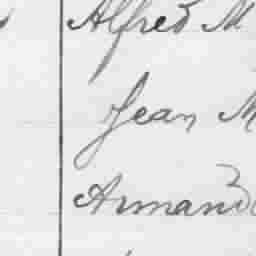 Alfred M
Jean M
Armand